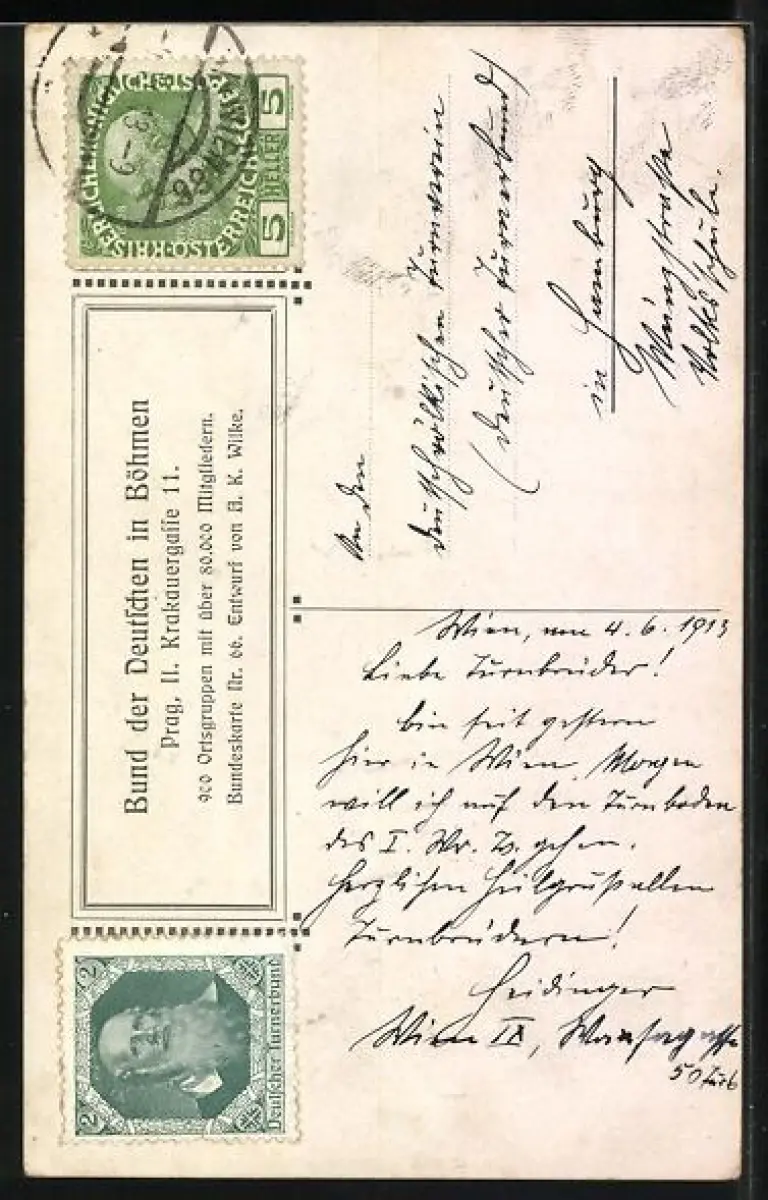 KAISERLICHE KÖNIGLICHE ÖSTERREICHISCHE POST
5 HELLER 5
WIEN
Bund der Deutschen in Böhmen
Prag, II. Krakauergasse 11.
900 Ortsgruppen mit über 80.000 Mitgliedern.
Bundeskarte Nr. 66. Entwurf von A. K. Wilke.
2 2
Deutscher Turnerbund
An den
deutschvölkischen Turnverein
(Deutscher Turnerbund)
in Hamburg
Münzstrasse
Volksschule.
Wien, am 4. 6. 1913
Liebe Turnbrüder!
bin seit gestern
hier in Wien. Morgen
will ich auf den Turnboden
des I. Wr. Tv. gehen.
Herzlichen Heilgruß allen
Turnbrüdern!
Heidinger
Wien IX,